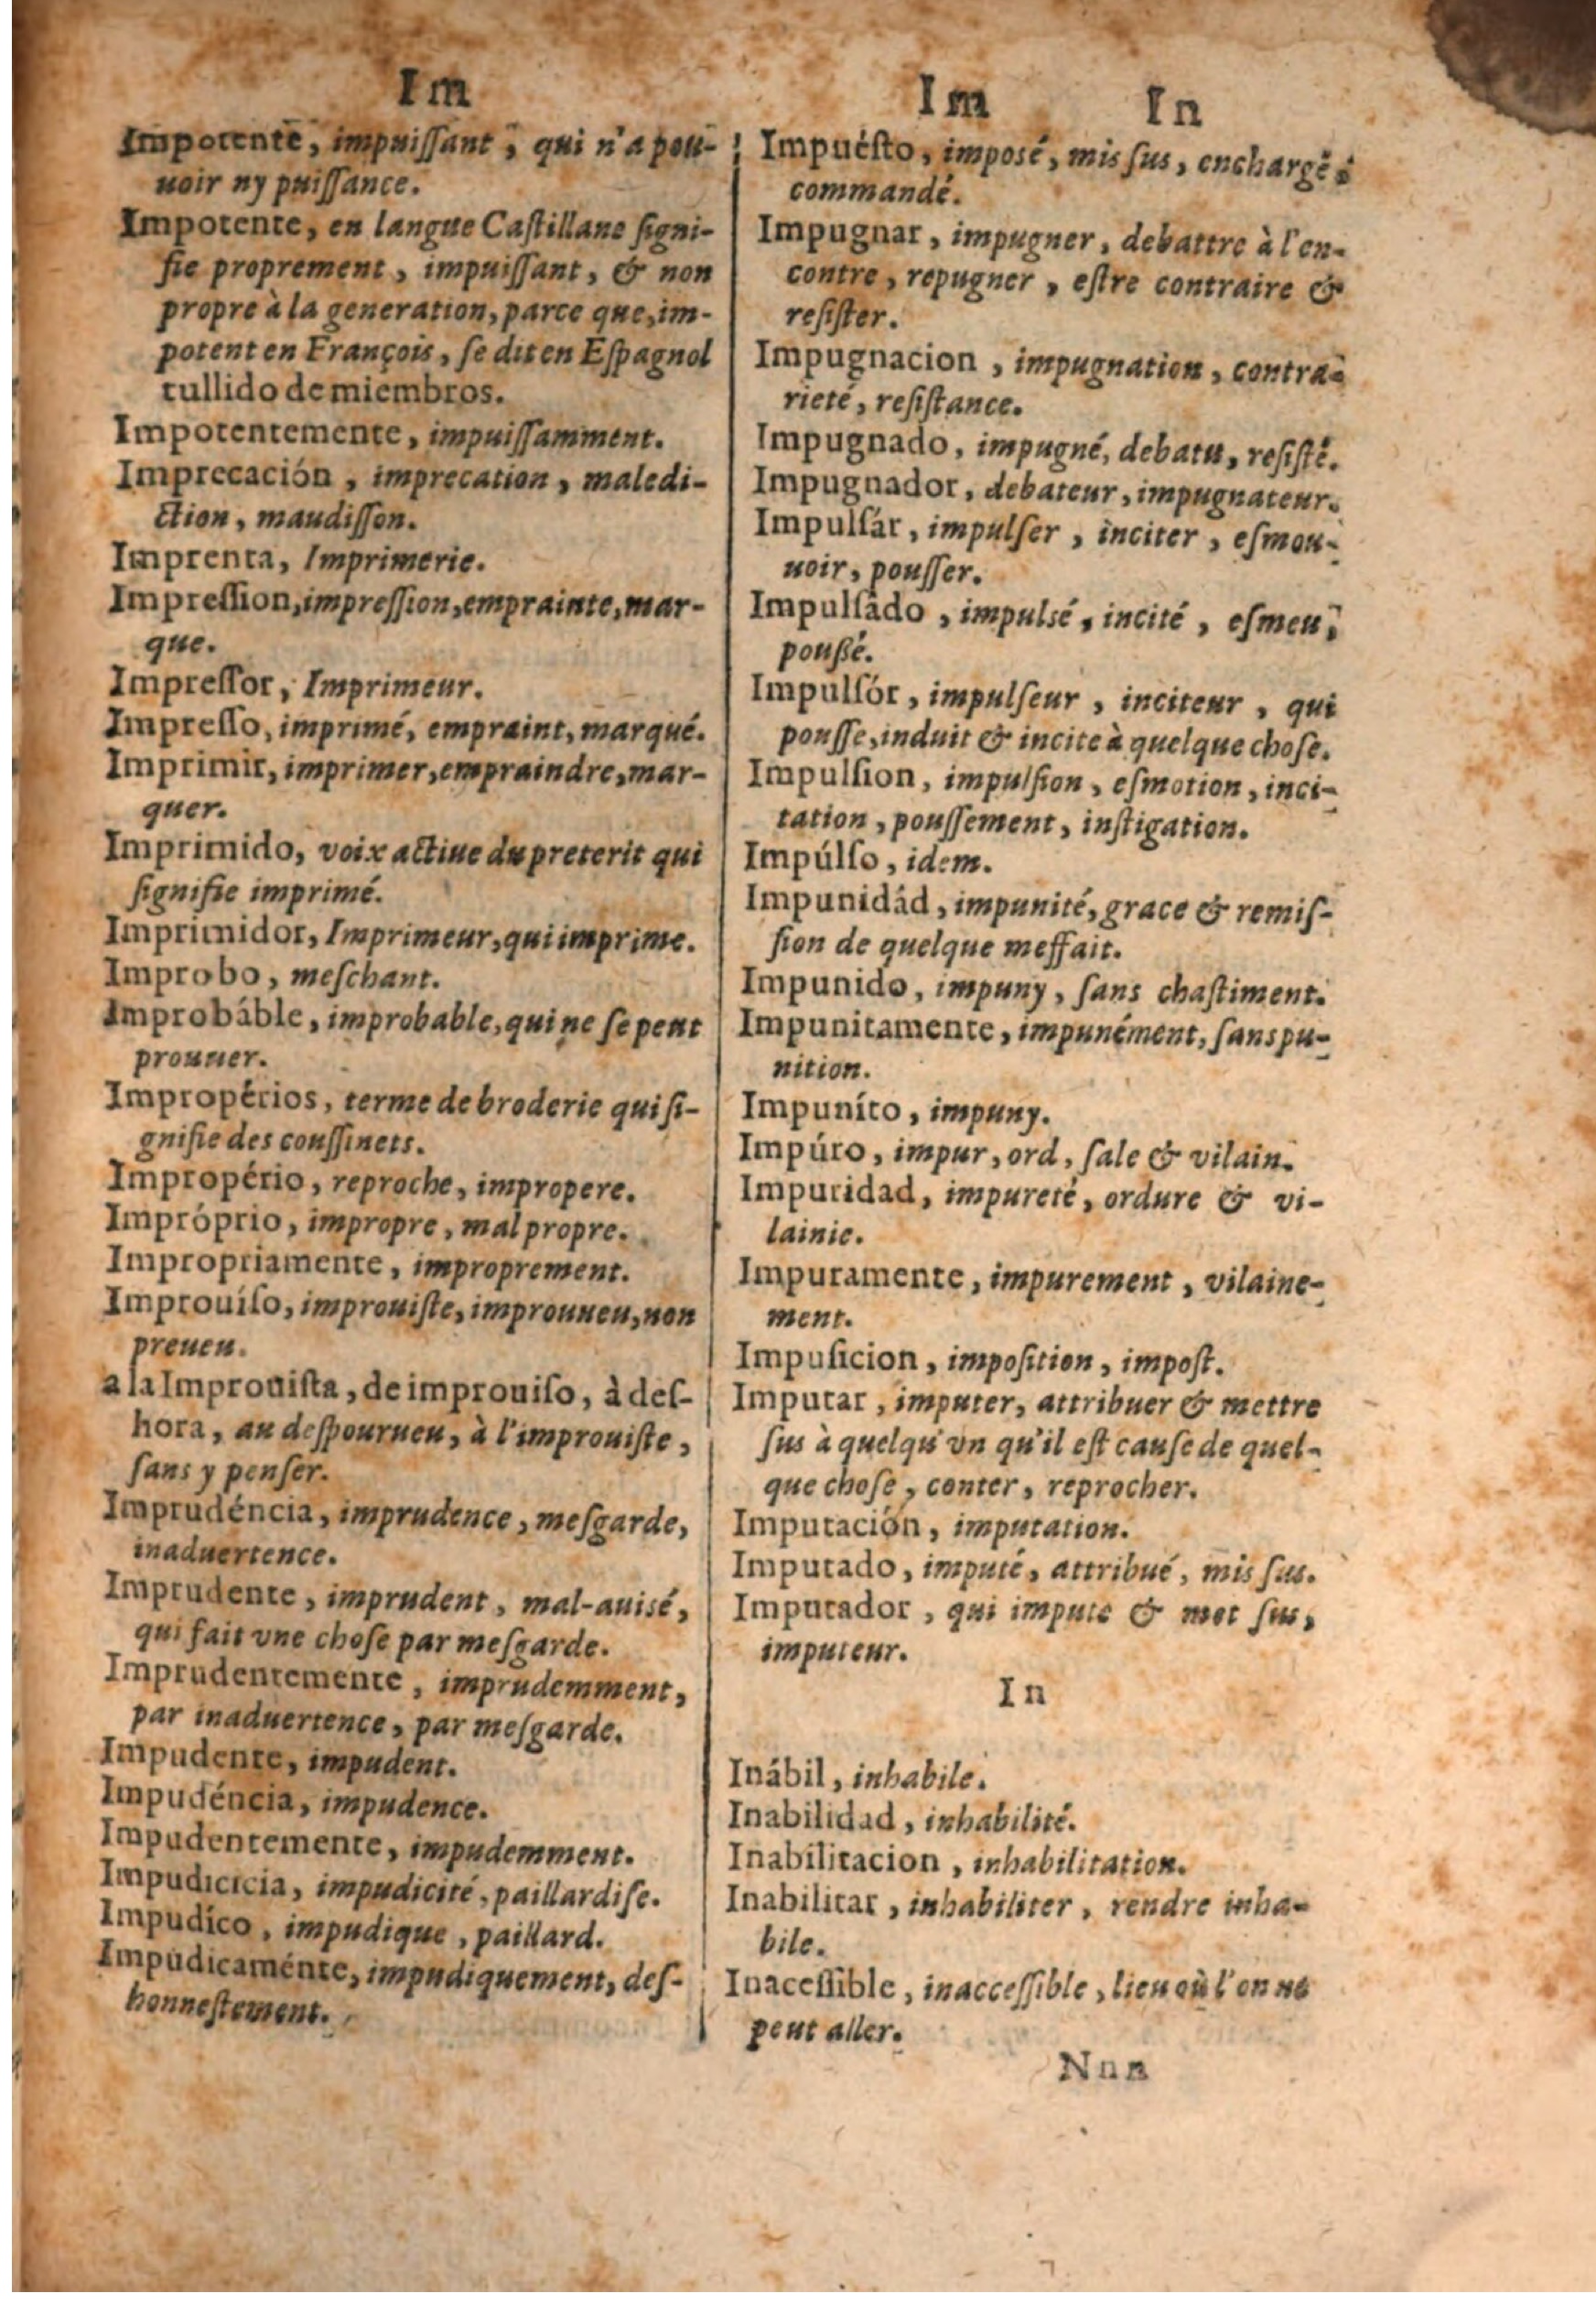 Im
Impotente, impuiſſant, qui n'a pou-
uoir ny puiſſance.
Impotente, en langue Caſtillane ſigni-
fie proprement, impuiſſant, & non
propre à la generation, parce que, im-
potent en François, ſe dit en Eſpagnol
tullido de miembros.
Impotentemente, impuiſſamment.
Imprecación, imprecation, maledi-
ction, maudiſſon.
Imprenta, Imprimerie.
Impreſſion, impreſſion, emprainte, mar-
que.
Impreſſor, Imprimeur.
Impreſſo, imprimé, empraint, marqué.
Imprimir, imprimer, empraindre, mar-
quer.
Imprimido, voix actiue du preterit qui
ſignifie imprimé.
Imprimidor, Imprimeur, qui imprime.
Improbo, meſchant.
Improbáble, improbable, qui ne ſe peut
prouuer.
Impropérios, terme de broderie qui ſi-
gnifie des couſſinets.
Impropério, reproche, impropere.
Impróprio, impropre, mal propre.
Impropriamente, improprement.
Improuíſo, improuiſte, improuueu, non
preueu.
a la Improuiſta, de improuiſo, à deſ-
hora, au deſpourueu, à l'improuiſte,
ſans y penſer.
Imprudéncia, imprudence, meſgarde,
inaduertence.
Imprudente, imprudent, mal-auisé,
qui fait vne choſe par meſgarde.
Imprudentemente, imprudemment,
par inaduertence, par meſgarde.
Impudente, impudent.
Impudéncia, impudence.
Impudentemente, impudemment.
Impudicicia, impudicité, paillardiſe.
Impudíco, impudique, paillard.
Impúdicaménte, impudiquement, deſ-
honneſtement.
Im In
Impuéſto, imposé, mis ſus, enchargé,
commandé.
Impugnar, impugner, debattre à l'en-
contre, repugner, eſtre contraire &
reſiſter.
Impugnacion, impugnation, contra-
rieté, reſiſtance.
Impugnado, impugné, debatu, reſiſté.
Impugnador, debateur, impugnateur.
Impulſár, impulſer, inciter, eſmou-
uoir, pouſſer.
Impulſádo, impulsé, incité, eſmeu,
poußé.
Impulſór, impulſeur, inciteur, qui
pouſſe, induit & incite à quelque choſe.
Impulſion, impulſion, eſmotion, inci-
tation, pouſſement, inſtigation.
Impúlſo, idem.
Impunidád, impunité, grace & remiſ-
ſion de quelque meffait.
Impunido, impuny, ſans chaſtiment.
Impunitamente, impunément, ſans pu-
nition.
Impuníto, impuny.
Impúro, impur, ord, ſale & vilain.
Impuridad, impureté, ordure & vi-
lainie.
Impuramente, impurement, vilaine-
ment.
Impuſicion, impoſition, impoſt.
Imputar, imputer, attribuer & mettre
ſus à quelqu'vn qu'il eſt cauſe de quel-
que choſe, conter, reprocher.
Imputación, imputation.
Imputado, imputé, attribué, mis ſus.
Imputador, qui impute & met ſus,
imputeur.
In
Inábil, inhabile.
Inabilidad, inhabilité.
Inabilitacion, inhabilitation.
Inabilitar, inhabiliter, rendre inha-
bile.
Inaceſſible, inacceſſible, lieu où l'on ne
peut aller.
Nnn